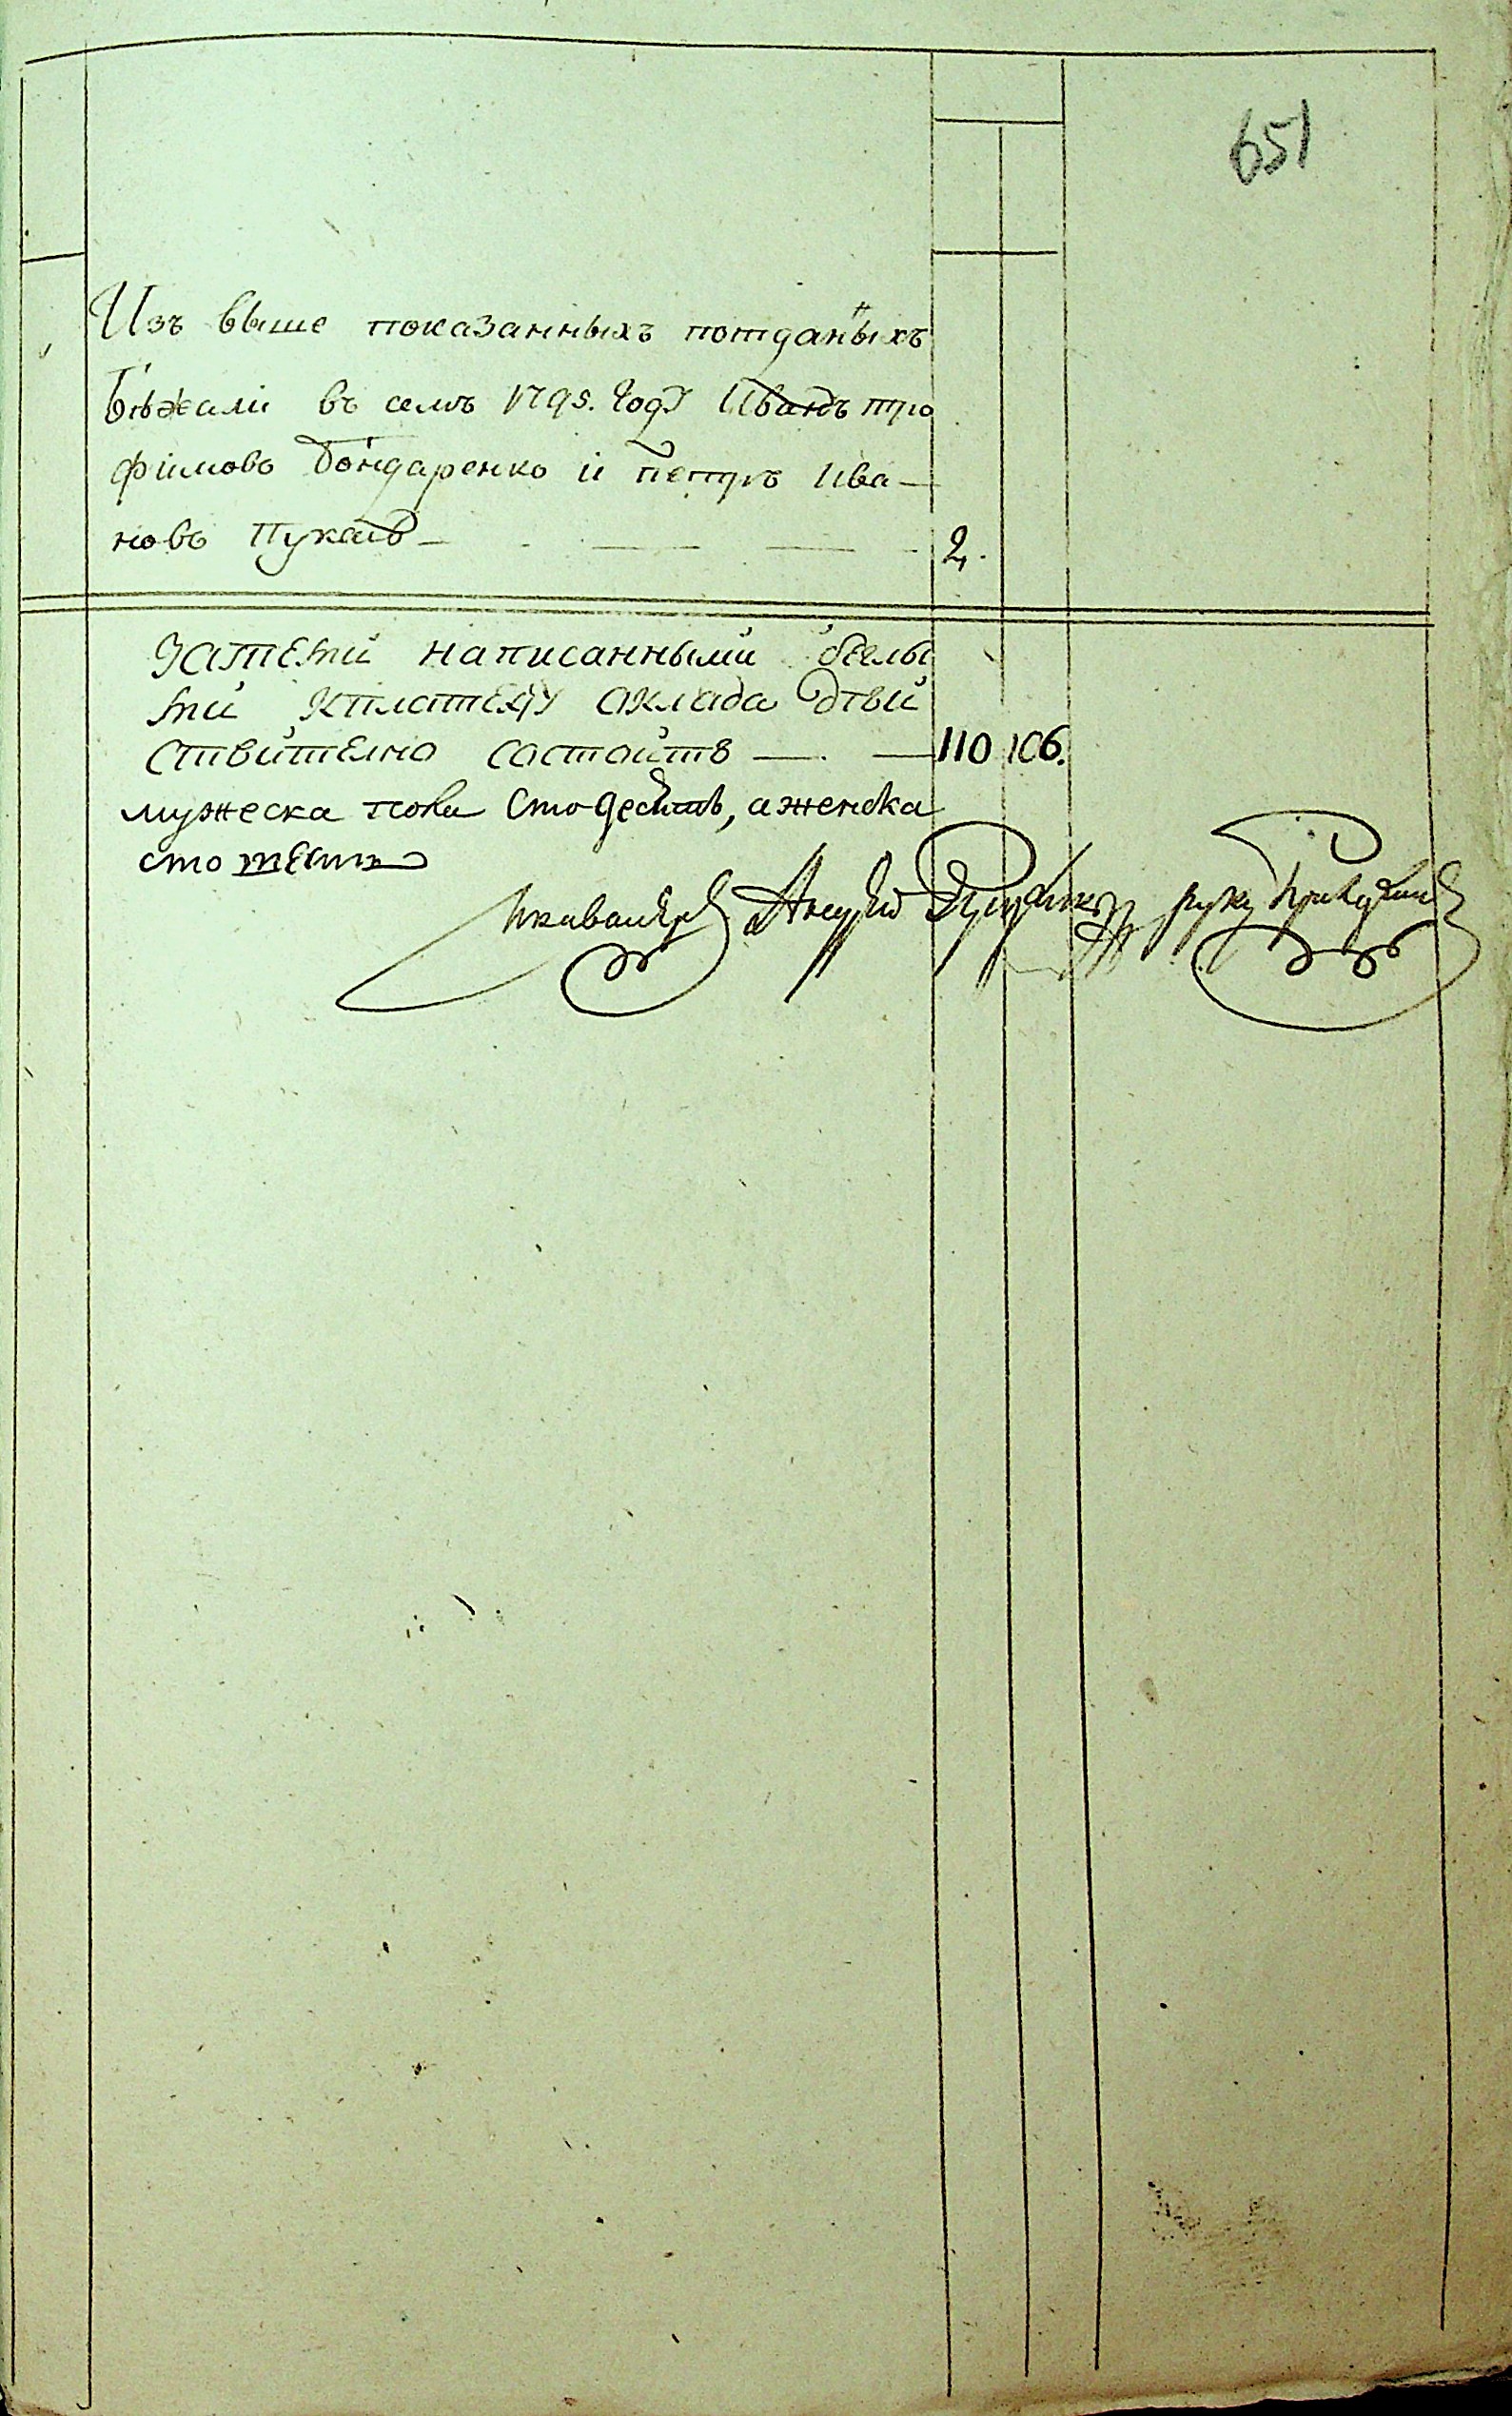 651
Изъ выше показанныхъ потданыхъ
бѣжали въ семъ 1795. году Иванъ тро
фимовъ бондаренко и петръ ива-
новъ Пукасъ 2.
Затеми написанными беглы
ми кплатежу оклада дѣй
ствително состоитъ 110 106.
мужеска пола сто десять, а женска
сто шесть
Андрей руку приложилъ